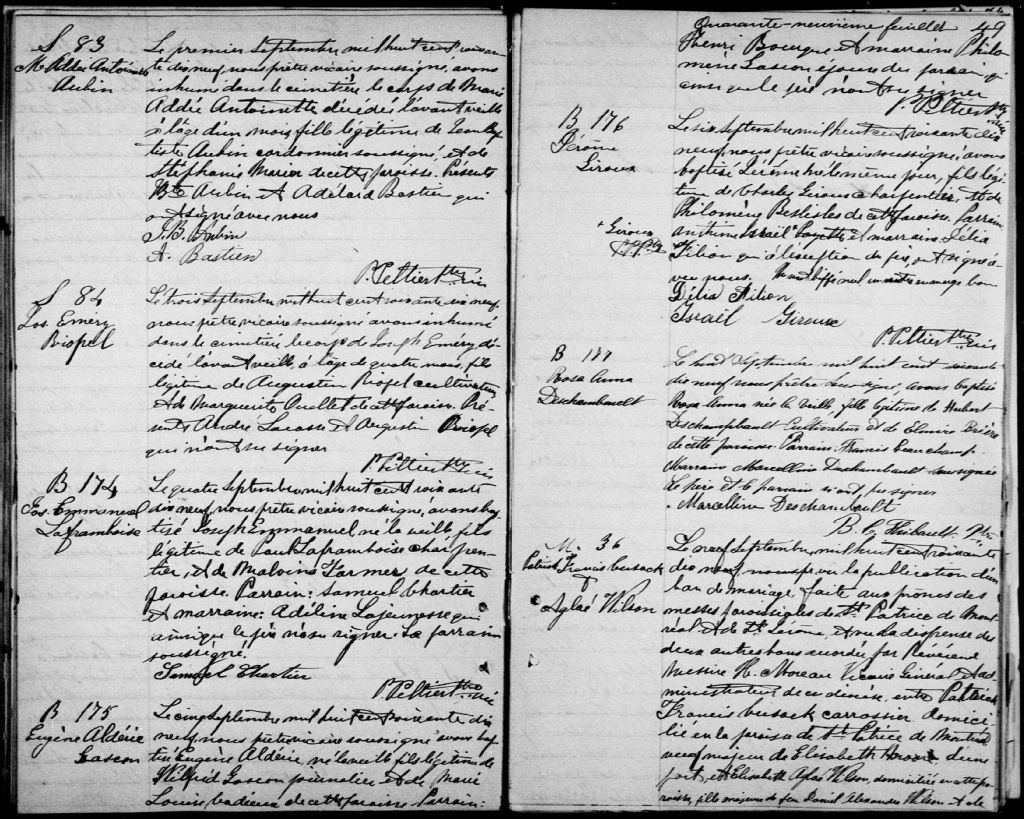 S 83
M. Addée Antoinette
Aubin
Le premier Septembre mil huit cent soixan
te dix neuf, nous prêtre vicaire soussigné, avons
inhumé dans le cimetière le corps de Marie
Addée Antoinette décédée l'avant veille
à l'âge d'un mois fille légitime de Jean Bap
tiste Aubin cordonnier soussigné, et de
Stéphanie Marier de cette paroisse. Présents
Bte Aubin et Adélard Bastien qui
ont signé avec nous
J. B. Aubin
A. Bastien
P. Peltier Ptre Vic
S 84
Jos. Emery
Riopel
Le trois Septembre mil huit cent soixante dix neuf,
nous prêtre vicaire soussigné avons inhumé
dans le cimetière le corps de Joseph Emery, dé
cédé l'avant veille, à l'âge de quatre mois, fils
légitime de Augustin Riopel cultivateur
et de Marguerite Ouellet de cette paroisse. Pré
sents André Lacasse et Augustin Riopel
qui n'ont su signer
P. Peltier Ptre Vic
B 174
Jos. Emmanuel
Laframboise
Le quatre Septembre mil huit cent soixante
dix neuf, nous prêtre vicaire soussigné, avons bap
tisé Joseph Emmanuel, né la veille, fils
légitime de Paul Laframboise charpen
tier, et de Malvina Farmer de cette
paroisse. Parrain: Samuel Chartier
et marraine: Adéline Lajeunesse qui
ainsi que le père n'a su signer. Le parrain
soussigné.
Samuel Chartier
P. Peltier Ptre Vic
B 175
Eugène Aldéric
Gascon
Le cinq Septembre mil huit cent soixante dix
neuf, nous prêtre vicaire soussigné avons bap
tisé Eugène Aldéric, né la veille fils légitime de
Wilfrid Gascon journalier et de Marie
Louise Cadieux de cette paroisse Parrain:
Quarante-neuvieme feuillet 49
Henri Bourque et marraine Philo
mène Gascon, épouse du parrain qui
ainsi que le père n'ont su signer
P. Peltier Ptre Vic
B 176
Jérôme
Giroux
Le six Septembre mil huit cent soixante dix
neuf, nous prêtre vicaire soussigné, avons
baptisé Jérôme né le même jour, fils légi
time de Charles Giroux charpentier, et de
Philomène Beslisles de cette paroisse. Parrain
Israël + et marraine Délia
+ Giroux
P.P. Ptre
Filion qui à l'exception du père, ont signé a-
vec nous. Un mot biffé nul un mot en marge bon
Délia Filion
Israël Giroux
P. Peltier Ptre Vic
B 177
Rosa Anna
Deschambault
Le huit Septembre mil huit cent soixante
dix neuf nous prêtre soussigné, avons baptisé
Rosa Anna née la veille, fille légitime de Hubert
Deschambault Cultivateur et de Elmire Brière
de cette paroisse. Parrain Francis Beauchamp
Marraine Marcelline Deschambault soussignée
le père et le parrain n'ont pu signer
Marcelline Deschambault
Thibault Ptre
M. 36
Patrick Francis Cusack
&
Aglaé Wilson
Le neuf Septembre, mil huit cent soixante
dix neuf, vu la publication d'un
ban de mariage faite aux prônes des
messes paroissiales de St. Patrice de Mont
réal et de St. Jérôme, et vu la dispense des
deux autres bans accordée par Révérend
Messire H. Moreau Vicaire Général et ad
ministrateur de ce diocèse, entre Patrick
Francis Cusack carrossier domici
lié en la paroisse de St. Patrice de Montréal
veuf majeur de Elisabeth d'une
part, et Elisabeth Aglaé Wilson, domiciliée en cette pa
roisse, fille majeure de feu Daniel Alexander Wilson et de